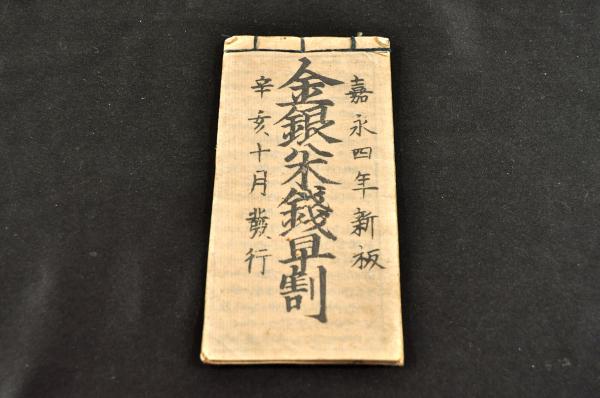 嘉永四年新板
金銀米錢早割
辛亥十月發行